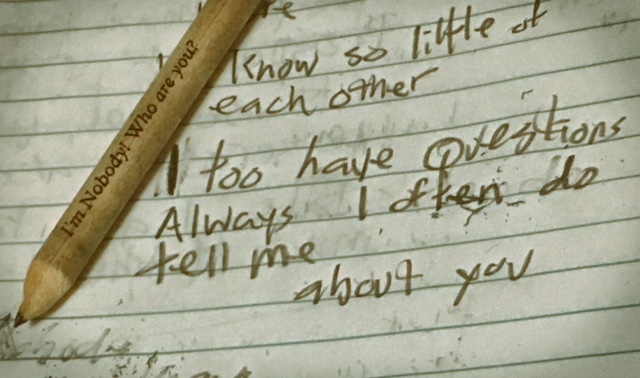 Know so little of
each other
I too have Questions
Always I often do
tell me
about you
I'm Nobody! Who are you?